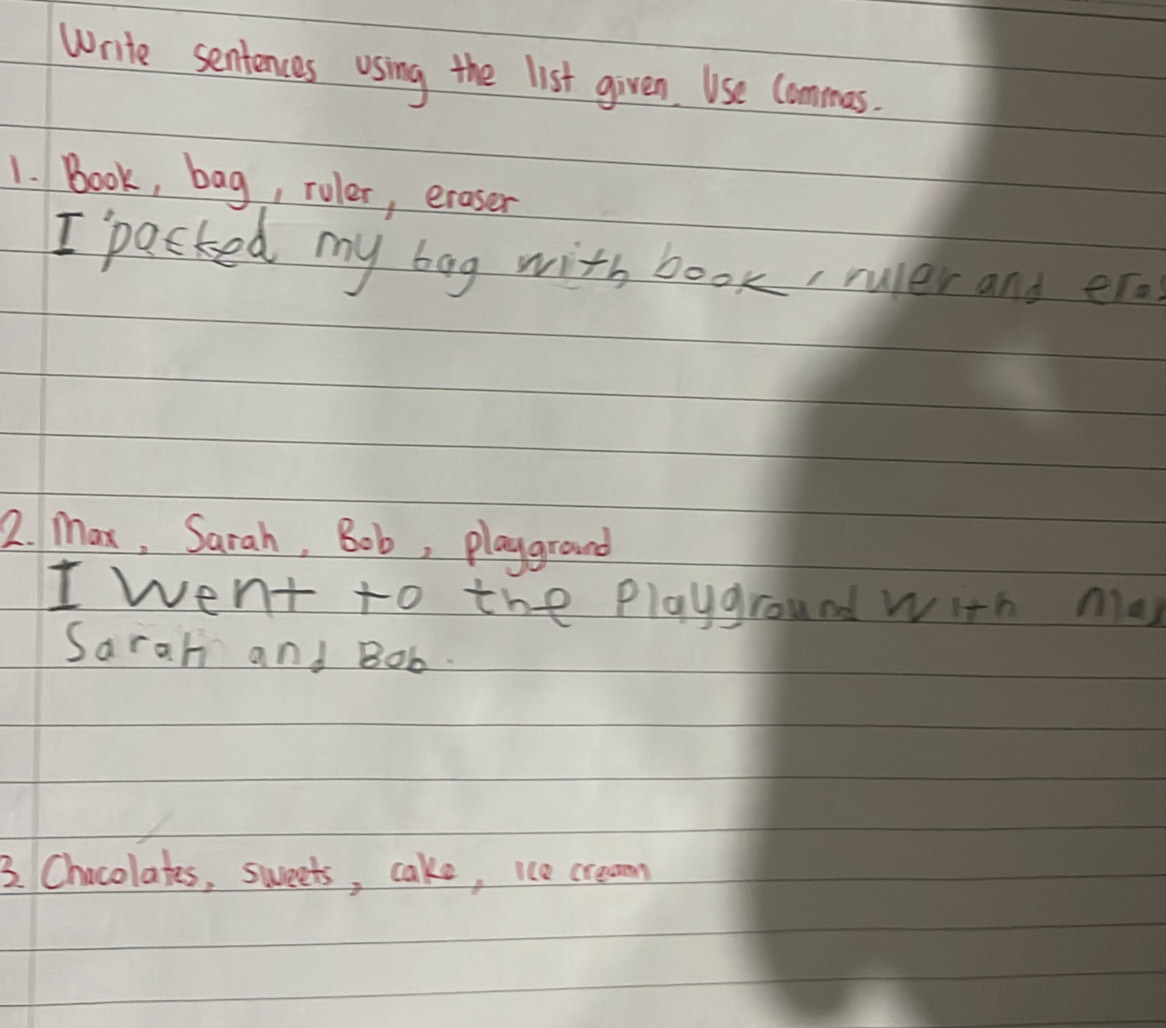 Write sentences using the list given. Use Commas.
1. Book, bag, ruler, eraser
I packed my bag with book, ruler and
2. Max, Sarah, Bob, playground
I Went to the Playground with
Sarah and Bob.
3. Chocolates, sweets, cake, ice cream